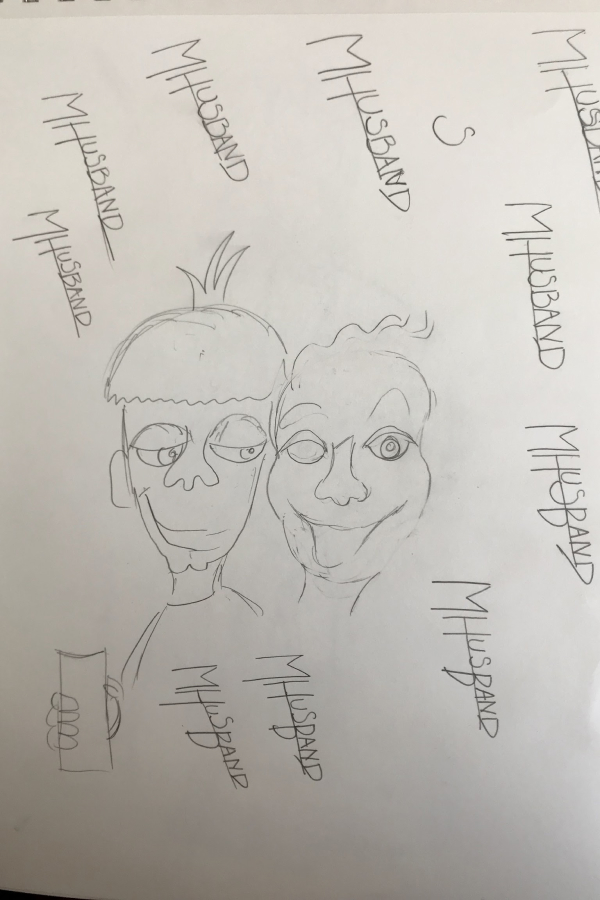 MHUSBAND
MHUSBAND
MHUSBAND
MHUSBAND
S
MHUSBAND
MHUSBAND
MHUSBAND
MHUSBAND
MHUSBAND
MHUSBAND